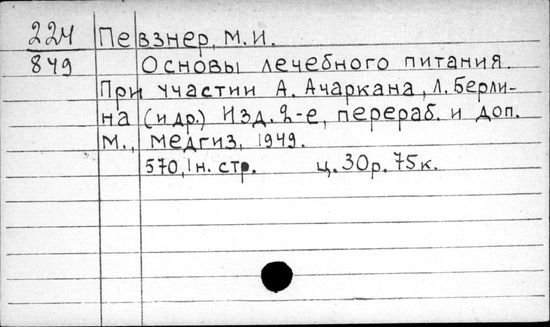 224 Певзнер, М.И.
849 Основы лечебного питания.
При участии А. Ачаркана, Л. Берли-
на (и др.) Изд. 2-е, перераб. и доп.
М., Медгиз, 1949.
570, 1 н. стр. ц. 30р. 75к.